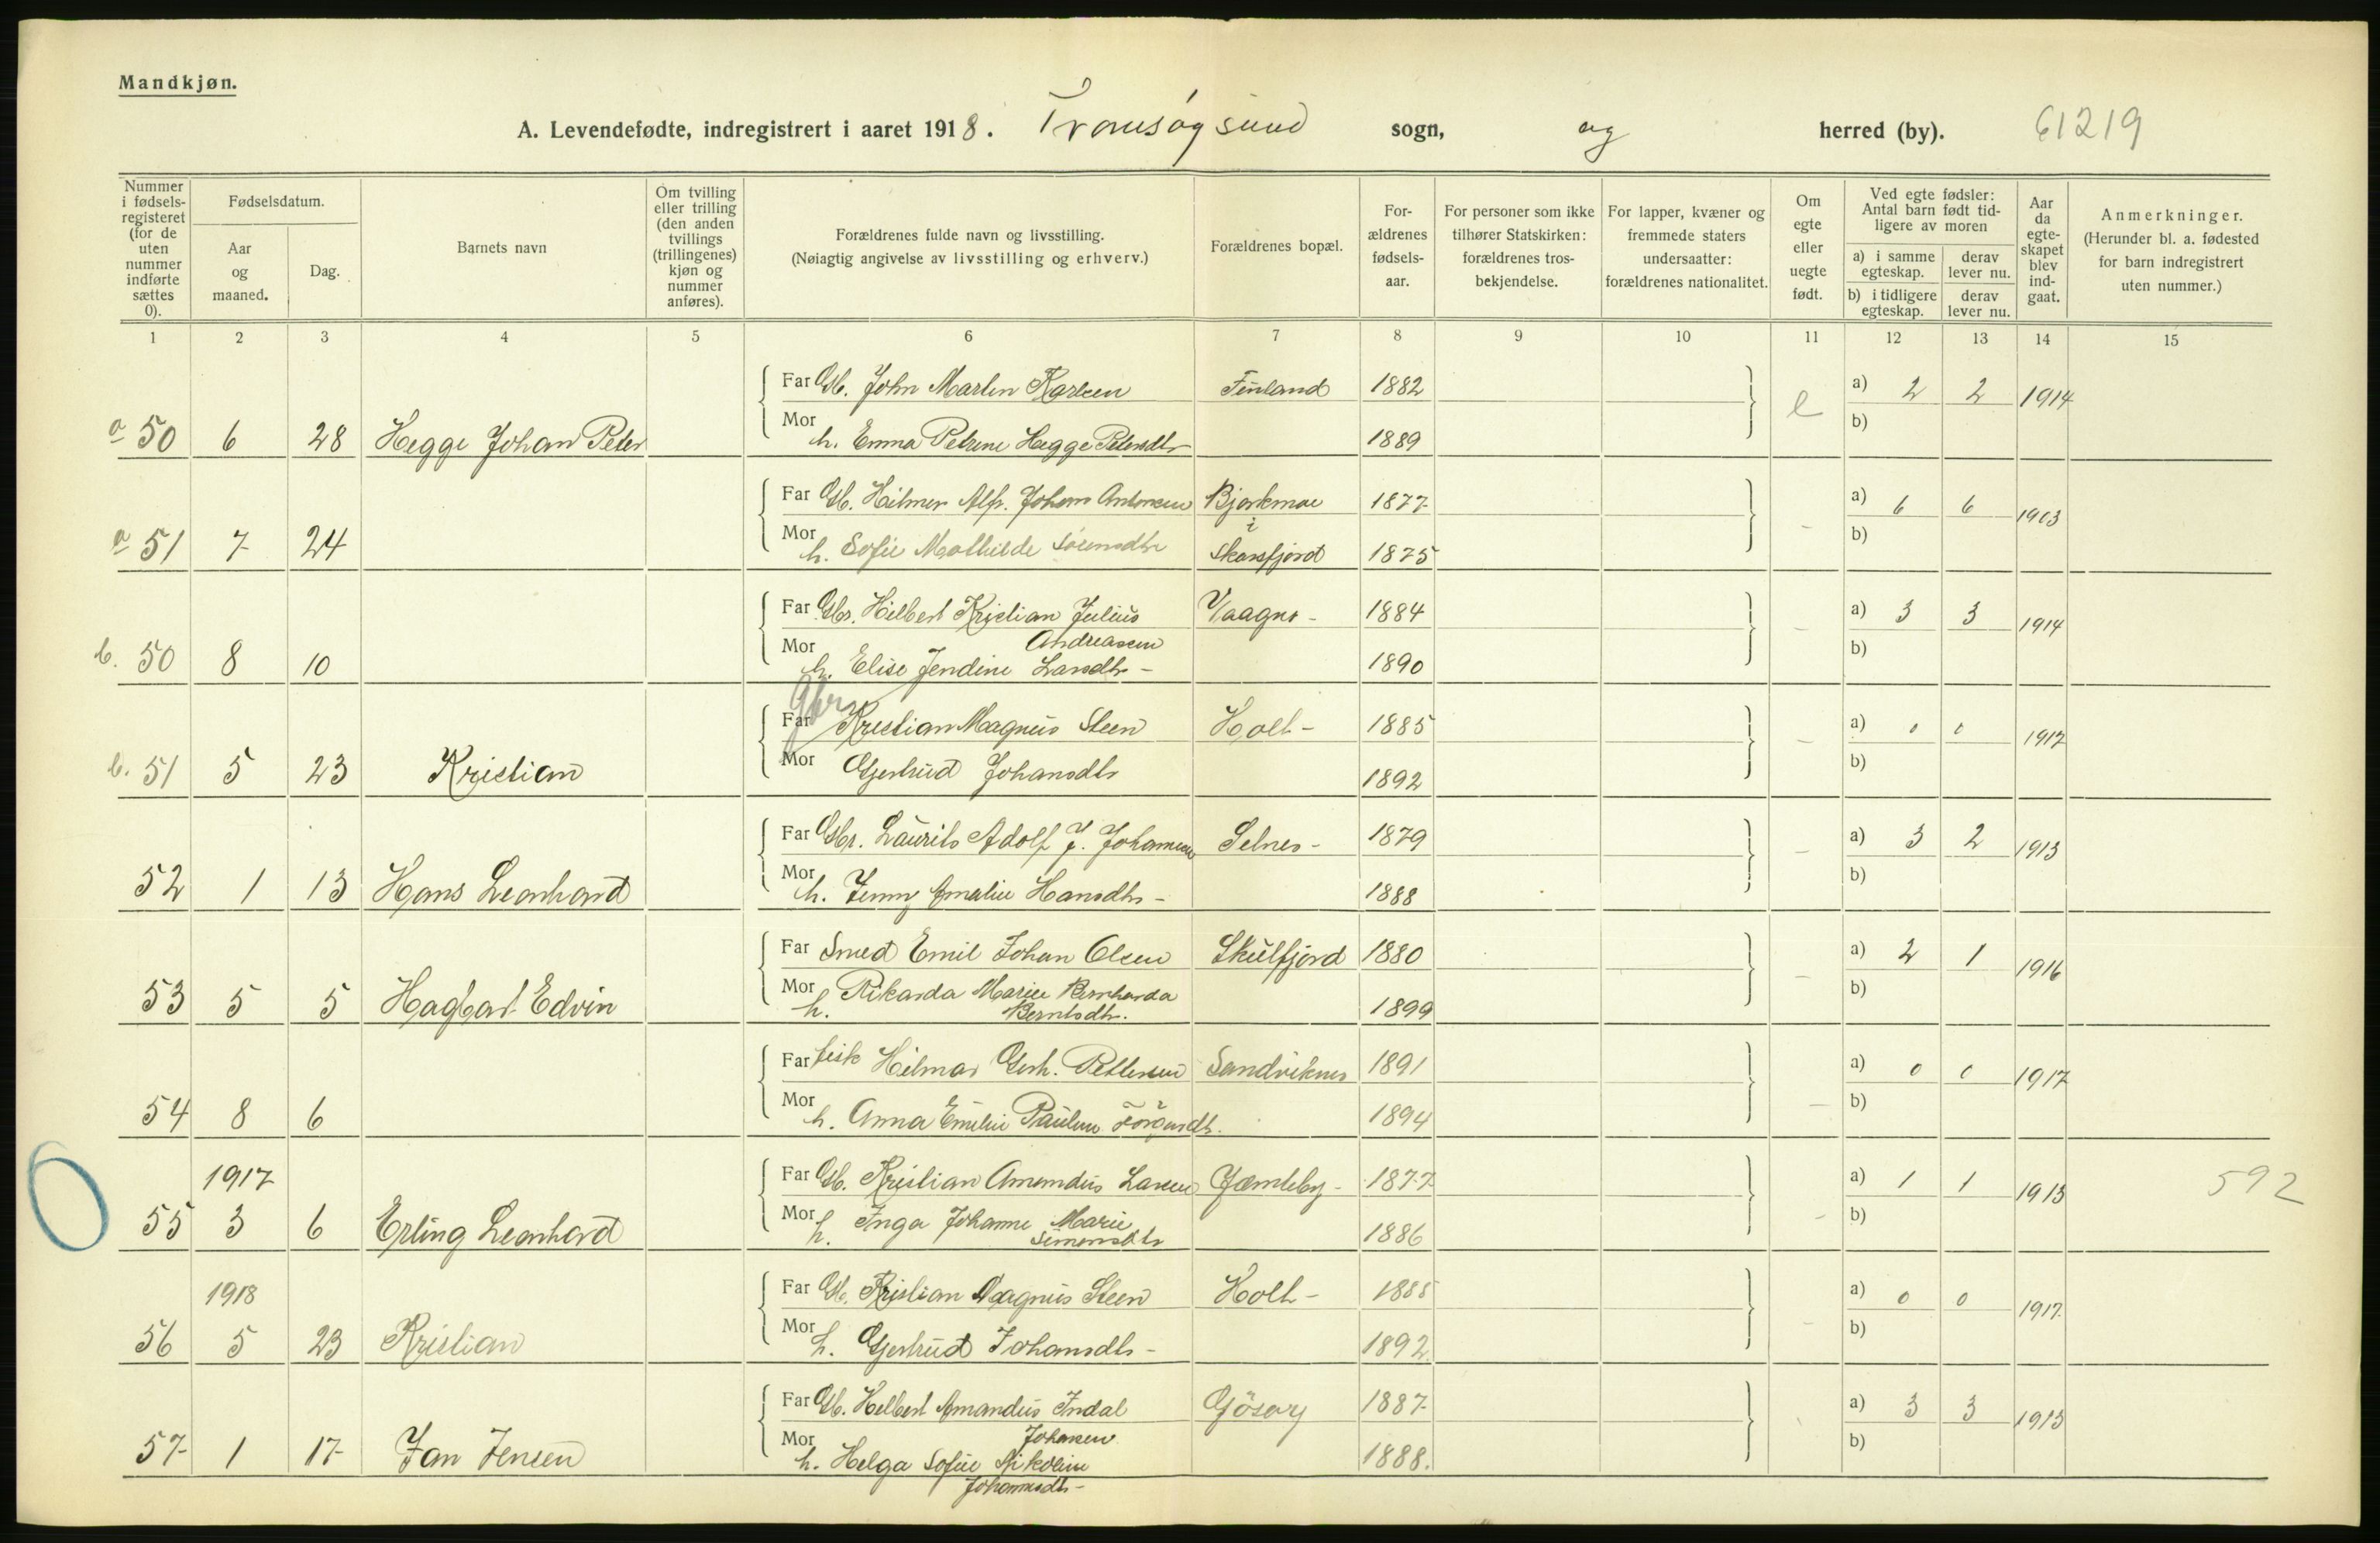 Mandkjøn.
A. Levendefødte, indregistrert i aaret 1918. Tromsøysund sogn, og herred (by). 61219
Nummer i fødsels-registeret (for de uten nummer indførte sættes 0).
Fødselsdatum.
Aar og maaned.
Dag.
Barnets navn
Om tvilling eller trilling (den anden tvillings (trillingenes) kjøn og nummer anføres).
Forældrenes fulde navn og livsstilling.
(Nøiagtig angivelse av livsstilling og erhverv.)
Forældrenes bopæl.
For-ældrenes fødsels-aar.
For personer som ikke tilhører Statskirken: forældrenes tros-bekjendelse.
For lapper, kvæner og fremmede staters undersaatter: forældrenes nationalitet.
Om egte eller uegte født.
Ved egte fødsler: Antal barn født tid-ligere av moren
a) i samme egteskap. derav lever nu.
b) i tidligere egteskap. derav lever nu.
Aar da egte-skapet blev ind-gaat.
Anmerkninger.
(Herunder bl. a. fødested for barn indregistrert uten nummer.)
1 2 3 4 5 6 7 8 9 10 11 12 13 14 15
Far Gb. John Martin Karlsen Finland 1882 a) 2 2 1914
a 50 6 28 Hegge Johan Peter Mor h. Emma Petrine Hegge Petersdtr 1889 e b)
Far Gb. Hilmer Alfr. Johan Antonsen Bjørkmoe 1877 a) 6 6 1903
i
a 51 7 24 Mor h. Sofie Mathilde Sørensdtr Skarsfjord 1875 - b)
Far Gbr. Hilbert Kristian Julius Vaagnes - 1884 a) 3 3 1914
Andreasen
b. 50 8 10 Mor h. Elise Jendine Larsdtr - 1890 - b)
Gbr
Far Kristian Magnus Steen Holt - 1885 a) 0 0 1917
b. 51 5 23 Kristian Mor Gjertrud Johansdtr 1892 - b)
Far Gbr. Laurits Adolf J. Johansen Selnes - 1879 a) 3 2 1913
52 1 13 Hans Leonhard Mor h. Jenny Amalie Hansdtr - 1888 - b)
Far Smed Emil Johan Olsen Skulfjord 1880 a) 2 1 1916
53 5 5 Hagbart Edvin Mor h. Rikarda Marie Bernharda 1899 - b)
Berntsdtr.
Far fisk Hilmar Gerh. Pettersen Sandviknes 1891 a) 0 0 1917
54 8 6 Mor h. Anna Emilie Pauline Jörgensdtr. 1894 - b)
1917 Far Gb. Kristian Amandus Larsen Jæmteby - 1877 a) 1 1 1913 592
55 3 6 Erling Leonhard Mor h. Inga Johanne Marie 1886 - b)
Simonsdtr
1918 Far Gb. Kristian Magnus Steen Holt - 1885 a) 0 0 1917
56 5 23 Kristian Mor h. Gjertrud Johansdtr - 1892. - b)
Far Gb. Helbert Amandus Indal Gåsvær 1887 a) 3 3 1913
Johansen
57 1 17 Jan Jensen Mor h. Helga Sofie Nikoline 1888. b)
Johannesdtr -